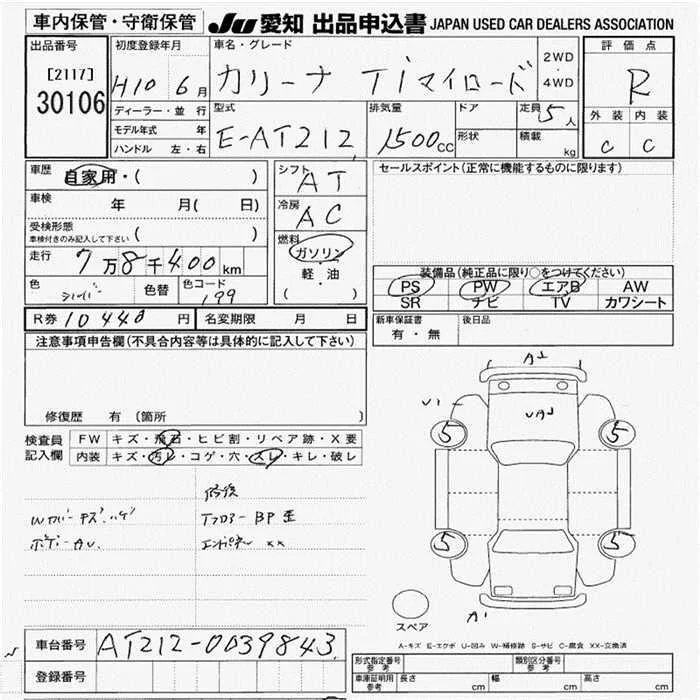 車内保管・守衛保管 JU 愛知 出品申込書 JAPAN USED CAR DEALERS ASSOCIATION
出品番号 初度登録年月 車名・グレード 2WD・4WD 評価点
[2117] H10 6月 カリーナ Tiマイロード R
30106 ディーラー・並行 型式 排気量 ドア 定員 5人 外装 内装
モデル年式 年 E-AT212 1500cc 形状 積載 kg C C
ハンドル 左・右
車歴 自家用・( ) シフト AT セールスポイント(正常に機能するものに限ります)
車検 年 月( 日) 冷房 AC
受検形態 ( )
車検付きのみ記入して下さい
燃料 ガソリン
軽・油
( )
走行 7万8千400km
色 シルバー 色替 色コード 199
装備品(純正品に限り○をつけてください)
PS PW エアB AW
SR ナビ TV カワシート
R券 10440円 名変期限 月 日
新車保証書 有・無 後日品
注意事項申告欄(不具合内容等は具体的に記入して下さい)
修復歴 有 (箇所 )
検査員記入欄 FW キズ・飛石・ヒビ割・リペア跡・X要
内装 キズ・汚レ・コゲ・穴・スレ・キレ・破レ
A1
U1
UA1
5 5
5 5
A1
スペア
Wカバーキズ、ハゲ
ボデーAU
Tフロアー BP歪
エンドパネル xx
A-キズ E-エクボ U-凹み W-補修跡 S-サビ C-腐食 XX-交換済
車台番号 AT212-0039843
登録番号
形式指定番号 参考 類別区分番号 参考
車庫証明用 参考 長さ cm 幅 cm 高さ cm